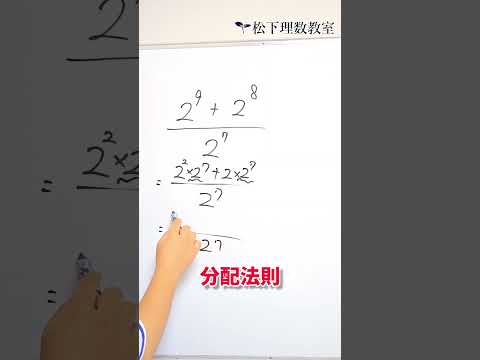 松下理数教室
2⁹ + 2⁸
2⁷
= 2²×2⁷+2×2⁷
2⁷
=
2⁷
分配法則